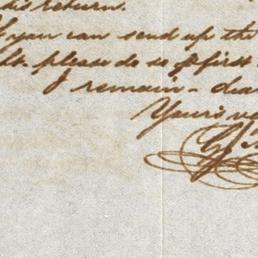 his return.
If you can send up the
please do so first
I remain - dear
Yours